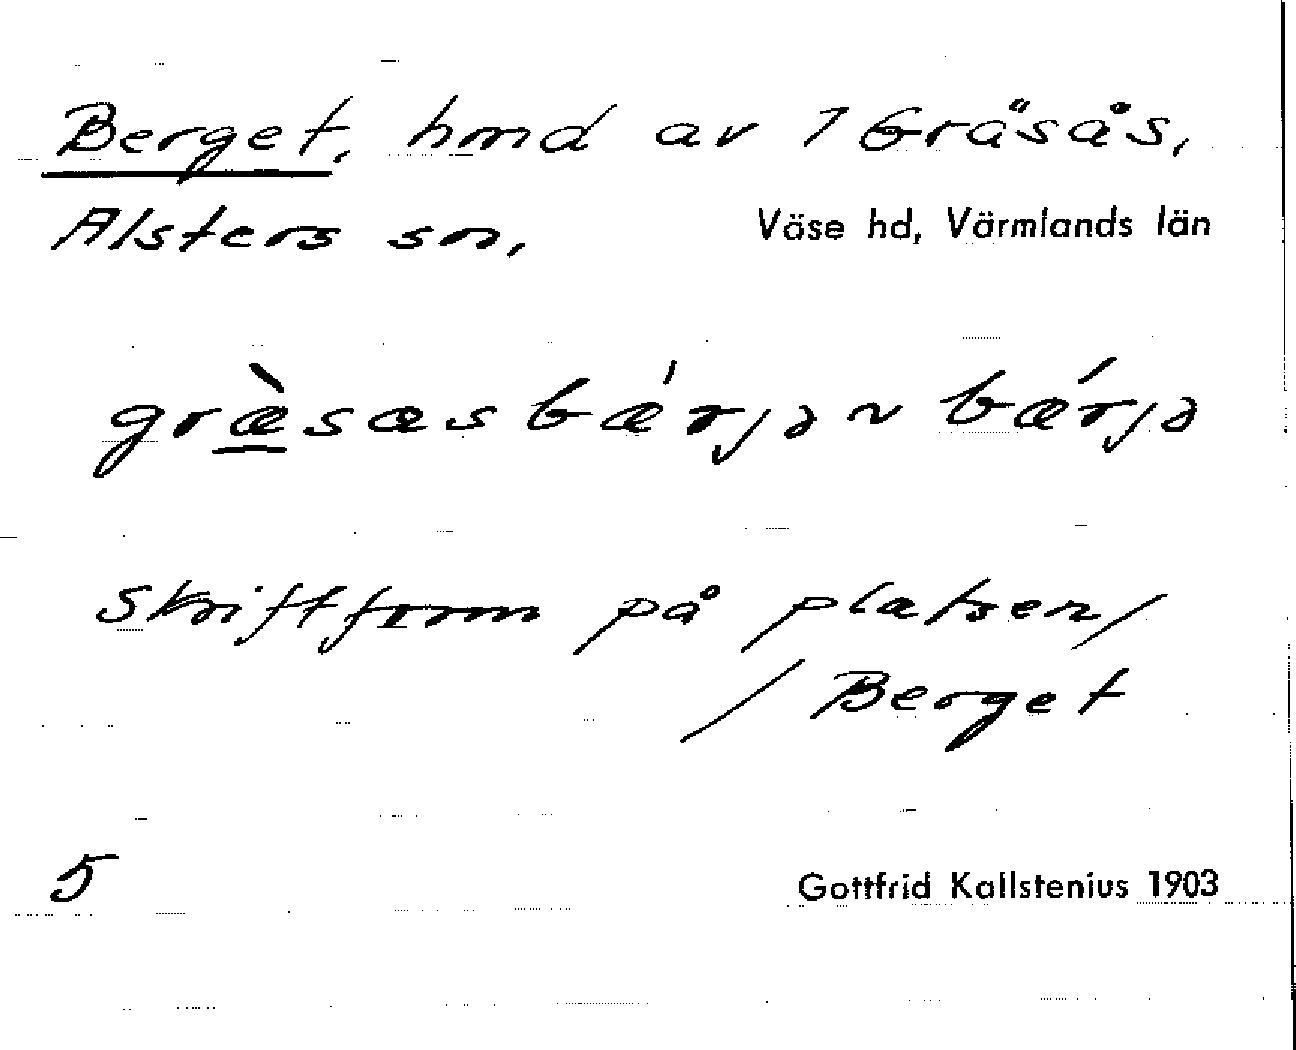 Berget, hmd av 1 Gräsås,
Alsters sn,
Väse hd, Värmlands län
græ̀sæsbǽrjə ~ bǽrjə
Skriftform på platsen/
/ Berget
5
Gottfrid Kallstenius 1903